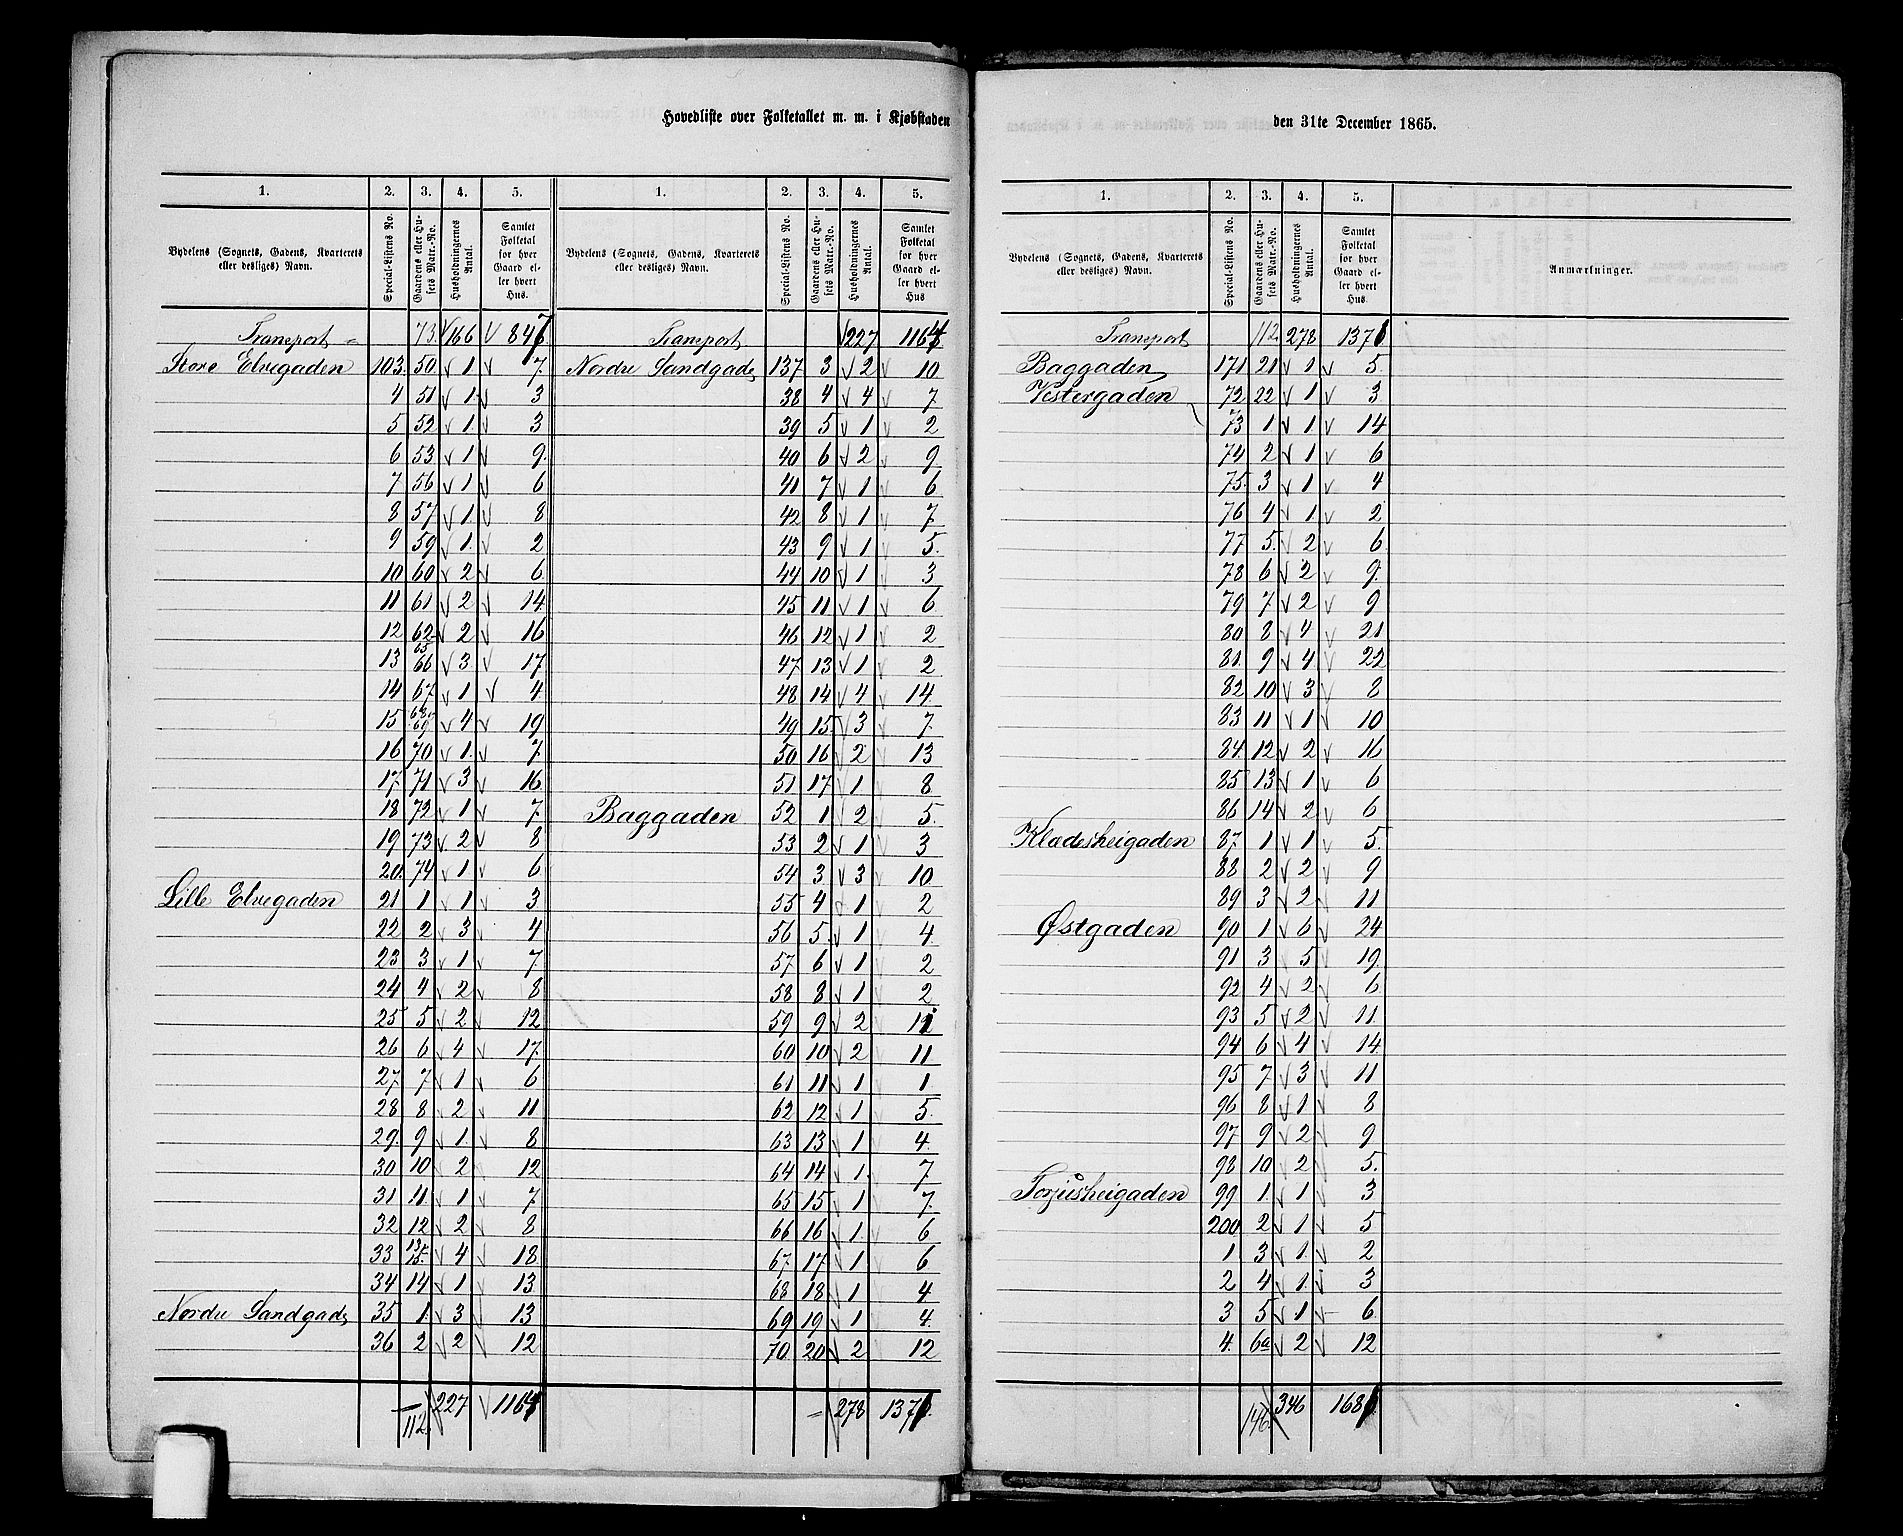 Hovedliste over Folketallet m. m. i Kjøbstaden
1. 2. 3. 4. 5.
Bydelens (Sognets, Gadens, Kvarterets eller desliges) Navn. Special-Listens No. Gaardens eller Husets Matr.-No. Husholdningernes Antal. Samlet Folketal for hver Gaard eller hvert Hus.
Transport 73 166 847
Store Elvegaden 103. 50. 1 7.
4 51 1 3
5 52 1 3
6 53 1 9.
7 56 1 6
8 57 1. 8
9 59 1. 2
10 60 2 6.
11 61 2 14
12 62 2 16
13 65 66 3 17.
14 67 1 4.
15 68 69 4 19
16 70 1. 7
17. 71 3 16.
18 72 1 7
19 73 2 8
20. 74 1 6
Lille Elvegaden 21 1 1 3
22 2 3 4
23 3 1 7.
24 4 2 8
25 5 2 12
26 6 4 17.
27 7 1 6
28 8 2 11
29. 9 1. 8
30 10 2 12
31 11 1 7
32 12 2 8
33 13 15. 4 18.
34 14 1 13.
Nordre Sandgade 35 1. 3 13
36 2 2 12
112. 227 1164
1. 2. 3. 4. 5.
Bydelens (Sognets, Gadens, Kvarterets eller desliges) Navn. Special-Listens No. Gaardens eller Husets Matr.-No. Husholdningernes Antal. Samlet Folketal for hver Gaard eller hvert Hus
Transport 227 1164
Nordre Sandgade 137 3 2 10
38 4 4 7
39 5 1 2
40 6 2 9
41 7 1 6
42 8 1 7
43 9 1 5.
44 10 1 3
45 11 1 6
46 12 1 2
47 13 1 2
48 14 4 14
49 15. 3 7.
50 16 2 13
51 17 1 8
Baggaden 52 1 2 5.
53 2 1 3
54 3 3 10
55 4 1 2
56 5. 1 4.
57 6 1 2
58 8 1 2
59 9 2
60 10 2 11
61 11 1 1
62 12 1 5.
63 13 1 4.
64 14 1. 7
65 15 1 7.
66 16 1. 6
67 17 1 6
68 18 1 4
69 19 1 4.
70 20 2 12
278 1371.
den 31te December 1865.
1. 2. 3. 4. 5.
Bydelens (Sognets, Gadens, Kvarterets eller desliges) Navn. Special-Listens No. Gaardens eller Husets Matr.-No. Husholdningernes Antal. Samlet Folketal for hver Gaard eller hvert Hus. Anmærkninger.
Transport 112 278 1371
Baggaden 171 21 1 5.
Vestergaden 72 22 1 3
73 1 1 14
74 2 1 6
75. 3 1 4
76 4 1. 2
77 5. 2 6.
78 6 2 9.
79 7 2 9
80 8 4 21
81. 9 4 22
82 10 3 8
83 11 1 10
84. 12 2 16
85 13 1 6
86 14 2 6
Kladesheigaden 87. 1 1 5.
88 2 2 9
89 3 2 11
Østgaden 90 1 6 24
91 3 5 19.
92 4 2 6
93 5 2 11.
94 6 4 14
95 7 3 11
96 8 1 8
97. 9 2 9
98 10 2 5.
Torjusheigaden 99 1. 1 3
200. 2 1 5
1. 3 1. 2
2 4 1. 3
3 5 1 6.
4. 6a 2 12
146. 346 1681